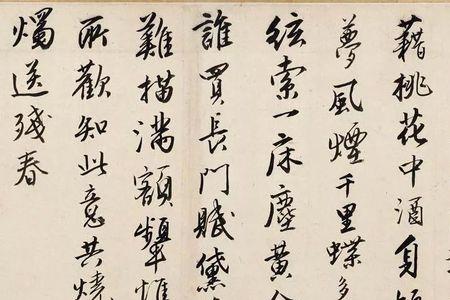 藉桃花中酒身
夢風煙千里蝶多
絃索一床塵黃金
誰買長門賦黛
難描滿額顰惟
所歡知此意共燒
燭送殘春